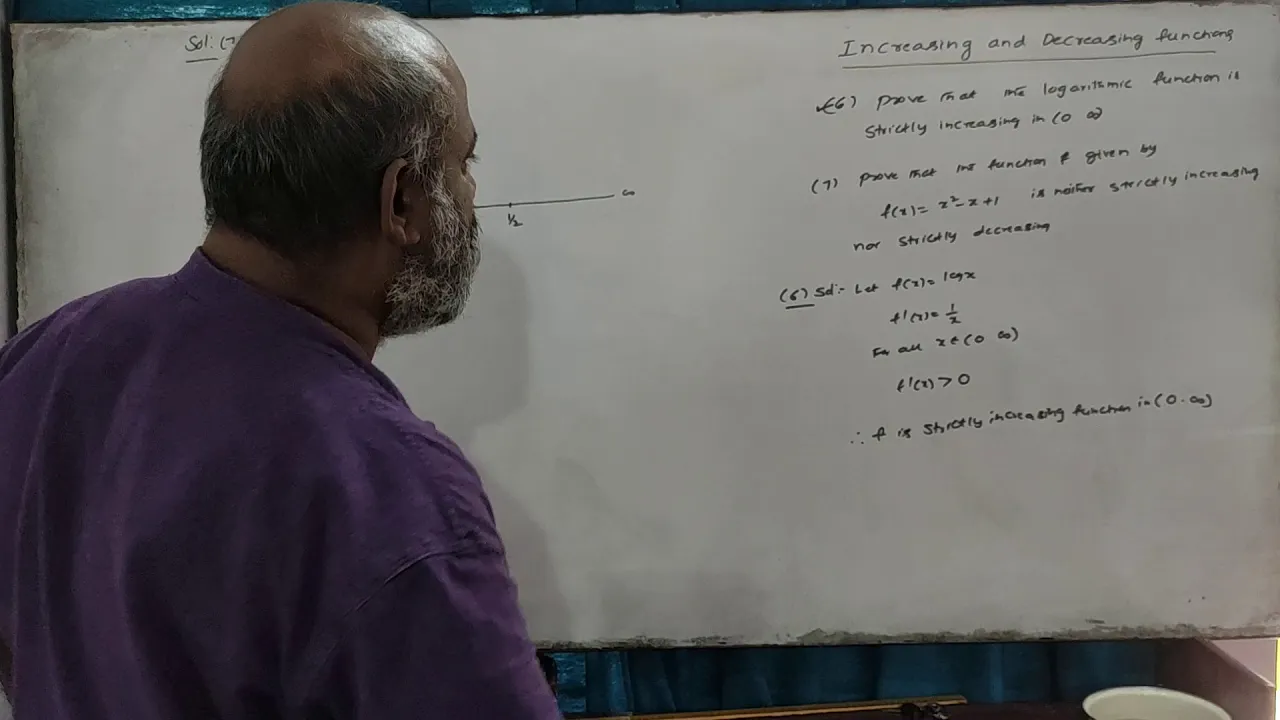 Sol: (7
∞
1/2
Increasing and Decreasing functions
(6) Prove that the logarithmic function is
strictly increasing in (0 ∞)
(7) Prove that the function f given by
f(x) = x²-x+1 is neither strictly increasing
nor strictly decreasing
(6) Sol:- Let f(x) = logx
f'(x) = 1/x
For all x ∈ (0 ∞)
f'(x) > 0
∴ f is strictly increasing function in (0 . ∞)